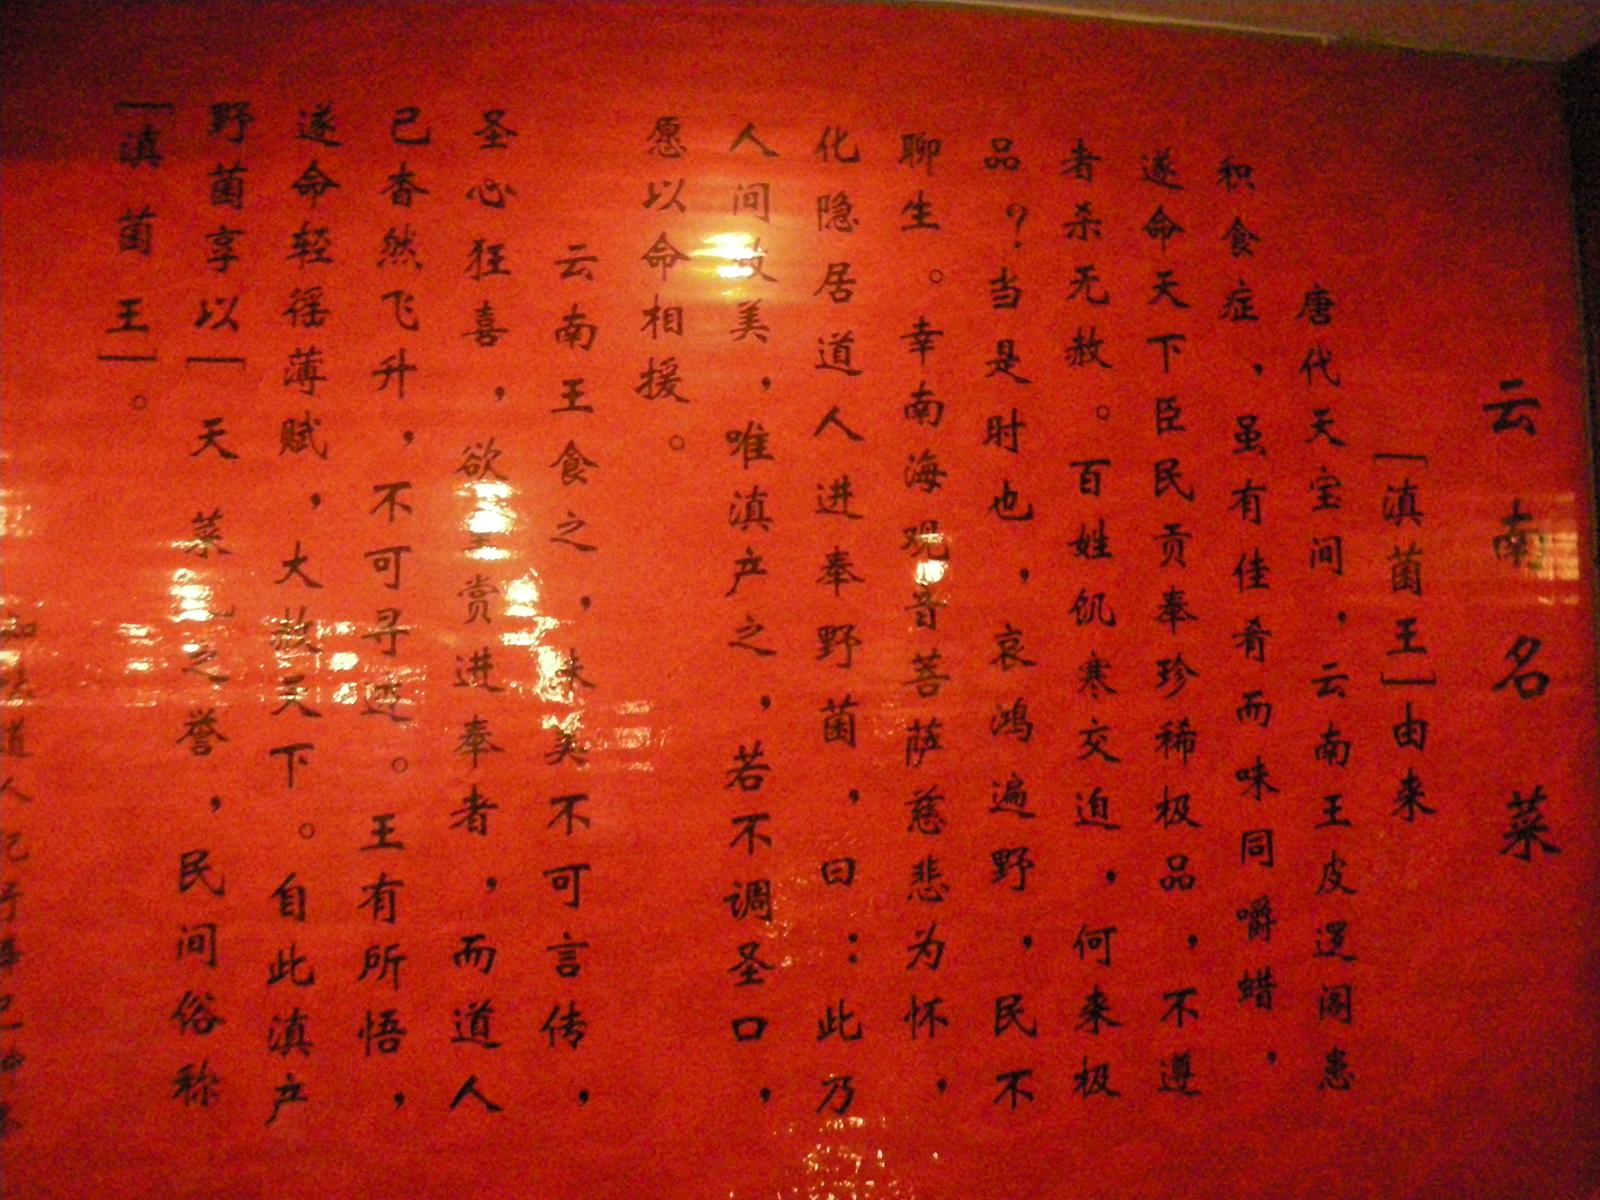 云南名菜
「滇菌王」由来
唐代天宝间，云南王皮逻阁患
积食症，虽有佳肴而味同嚼蜡，
遂命天下臣民贡奉珍稀极品，不遵
者杀无赦。百姓饥寒交迫，何来极
品？当是时也，哀鸿遍野，民不
聊生。幸南海观音菩萨慈悲为怀，
化隐居道人进奉野菌，曰：此乃
人间故美，唯滇产之，若不调圣口，
愿以命相援。
云南王食之，味美不可言传，
圣心狂喜，欲赏进奉者，而道人
已杳然飞升，不可寻迹。王有所悟，
遂命轻徭薄赋，大赦天下。自此滇产
野菌享以「天菜」之誉，民间俗称
「滇菌王」。
道人记于